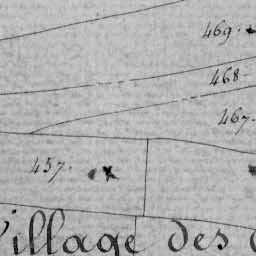 469.
468.
467.
457.
Village des